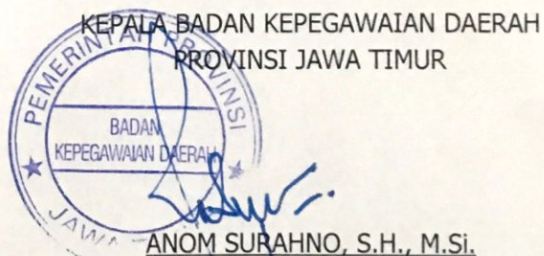 KEPALA BADAN KEPEGAWAIAN DAERAH
PROVINSI JAWA TIMUR
PEMERINTAH PROVINSI
BADAN
KEPEGAWAIAN DAERAH
JAWA
ANOM SURAHNO, S.H., M.Si.